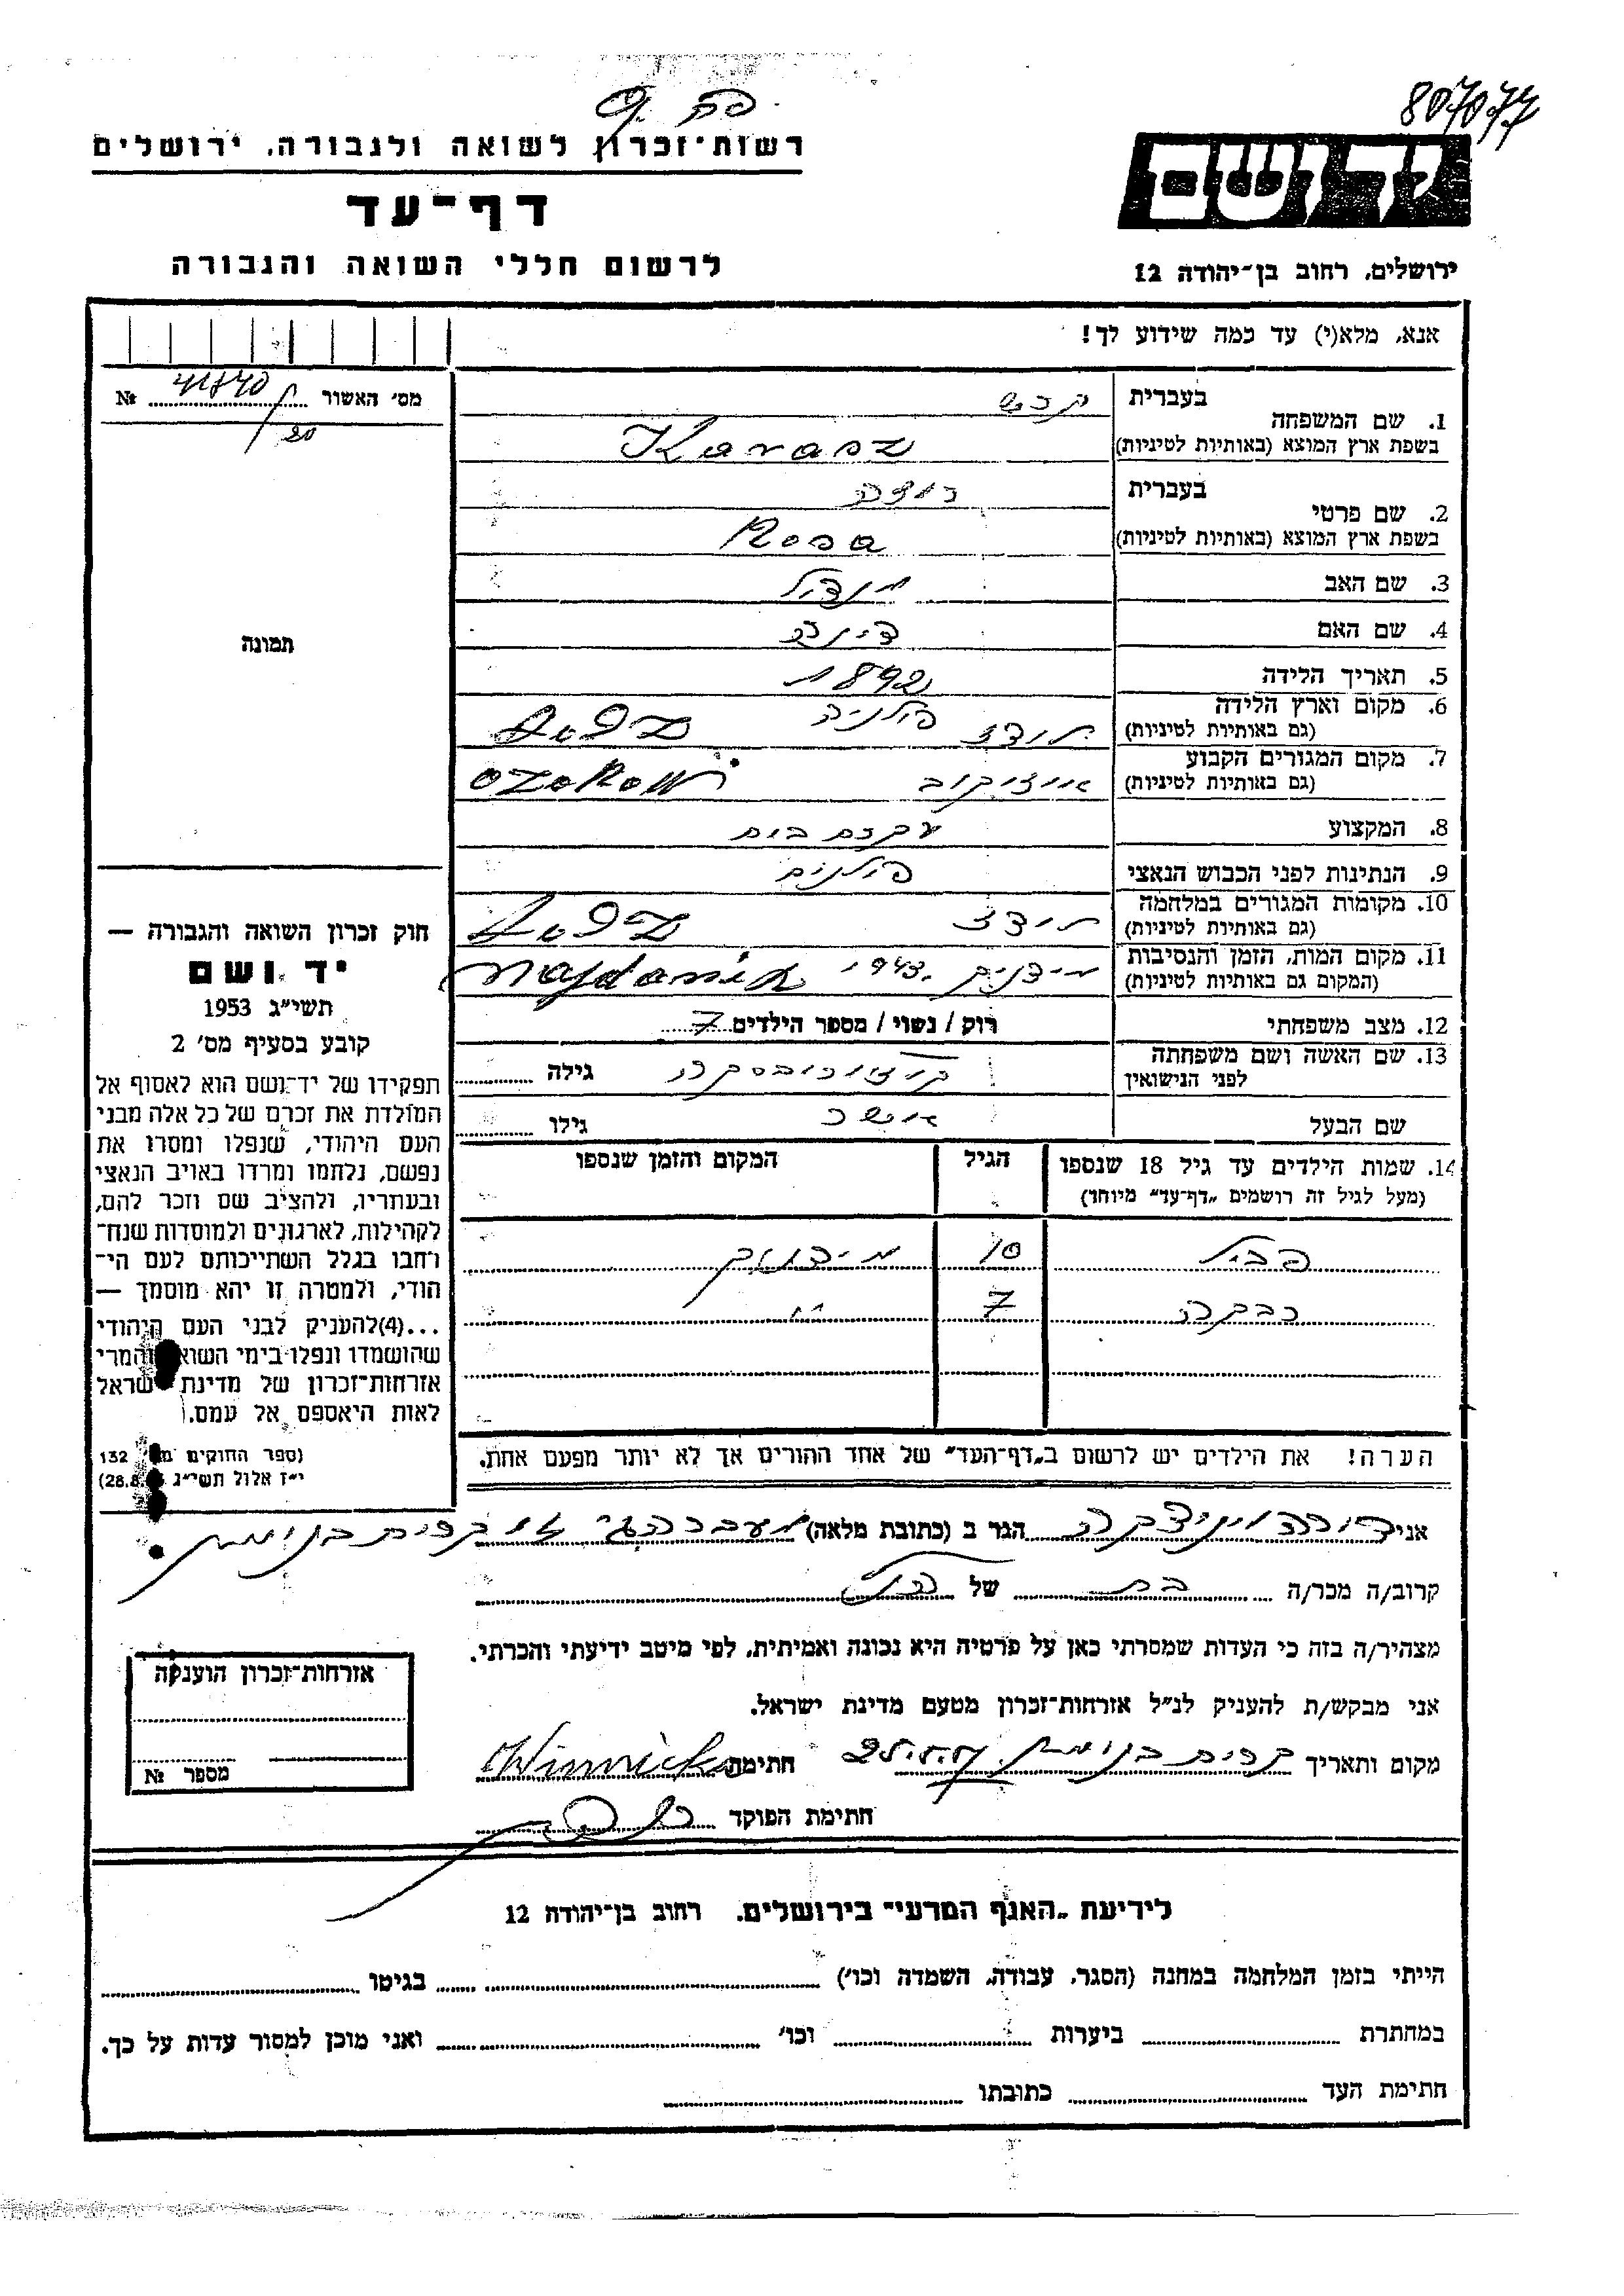 807077
רשות־זכרון לשואה ולגבורה, ירושלים
דף־עד
לרשום חללי השואה והגבורה
יד ושם
ירושלים, רחוב בן־יהודה 12
אנא, מלא(י) עד כמה שידוע לך!
מס׳ האשור № 
1. שם המשפחה בעברית קרש
בשפת ארץ המוצא (באותיות לטיניות) Karasz
2. שם פרטי בעברית רוזה
בשפת ארץ המוצא (באותיות לטיניות) Rosa
3. שם האב מנדיל
4. שם האם דינה
5. תאריך הלידה 1892
6. מקום וארץ הלידה
(גם באותיות לטיניות) לודז פולניה
7. מקום המגורים הקבוע
(גם באותיות לטיניות) OZORKOW
8. המקצוע עקרת בית
9. הנתינות לפני הכבוש הנאצי פולנית
10. מקומות המגורים במלחמה
(גם באותיות לטיניות) לודז
11. מקום המות, הזמן והנסיבות
(המקום גם באותיות לטיניות) מידנק 1943. Majdanik
12. מצב משפחתי רוק / נשוי / מספר הילדים 7
13. שם האשה ושם משפחתה
לפני הנישואין גילה
שם הבעל אושר גילו
14. שמות הילדים עד גיל 18 שנספו הגיל המקום והזמן שנספו
(מעל לגיל זה רושמים „דף־עד״ מיוחד)
10 מידנק
רבקה 7 "
הערה! את הילדים יש לרשום ב„דף־העד״ של אחד ההורים אך לא יותר מפעם אחת.
תמונה
חוק זכרון השואה והגבורה —
יד ושם
תשי״ג 1953
קובע בסעיף מס׳ 2
תפקידו של יד־ושם הוא לאסוף אל
המולדת את זכרם של כל אלה מבני
העם היהודי, שנפלו ומסרו את
נפשם, נלחמו ומרדו באויב הנאצי
ובעוזריו, ולהציב שם וזכר להם,
לקהילות, לארגונים ולמוסדות שנח־
רחבו בגלל השתייכותם לעם הי־
הודי, ולמטרה זו יהא מוסמך —
...(4) להעניק לבני העם היהודי
שהושמדו ונפלו בימי השואה והמרי
אזרחות־זכרון של מדינת ישראל
לאות היאספם אל עמם.
(ספר החוקים מס׳ 132
י״ז אלול תשי״ג 28.8.
אני דורה ויניצקה הגר ב (כתובת מלאה) קרית בנימין
קרוב/ה מכר/ה בת של הנ״ל
מצהיר/ה בזה כי העדות שמסרתי כאן על פרטיה היא נכונה ואמיתית, לפי מיטב ידיעתי והכרתי.
אני מבקש/ת להעניק לנ״ל אזרחות־זכרון מטעם מדינת ישראל.
מקום ותאריך קרית בנימין חתימת Winnicka
חתימת הפוקד
אזרחות־זכרון הוענקה
מספר №
לידיעת „האגף המדעי״ בירושלים, רחוב בן־יהודה 12
הייתי בזמן המלחמה במחנה (הסגר, עבודה, השמדה וכו׳) בגיטו
במחתרת ביערות וכו׳ ואני מוכן למסור עדות על כך.
חתימת העד כתובתו